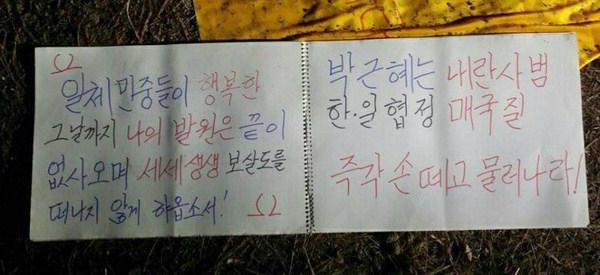 Ω
일체 민중들이 행복한
그날까지 나의 발원은 끝이
없사오며 세세생생 보살도를
떠나지 않게 하옵소서! Ω
박근혜는 내란사범
한·일협정 매국질
즉각 손 떼고 물러나라!